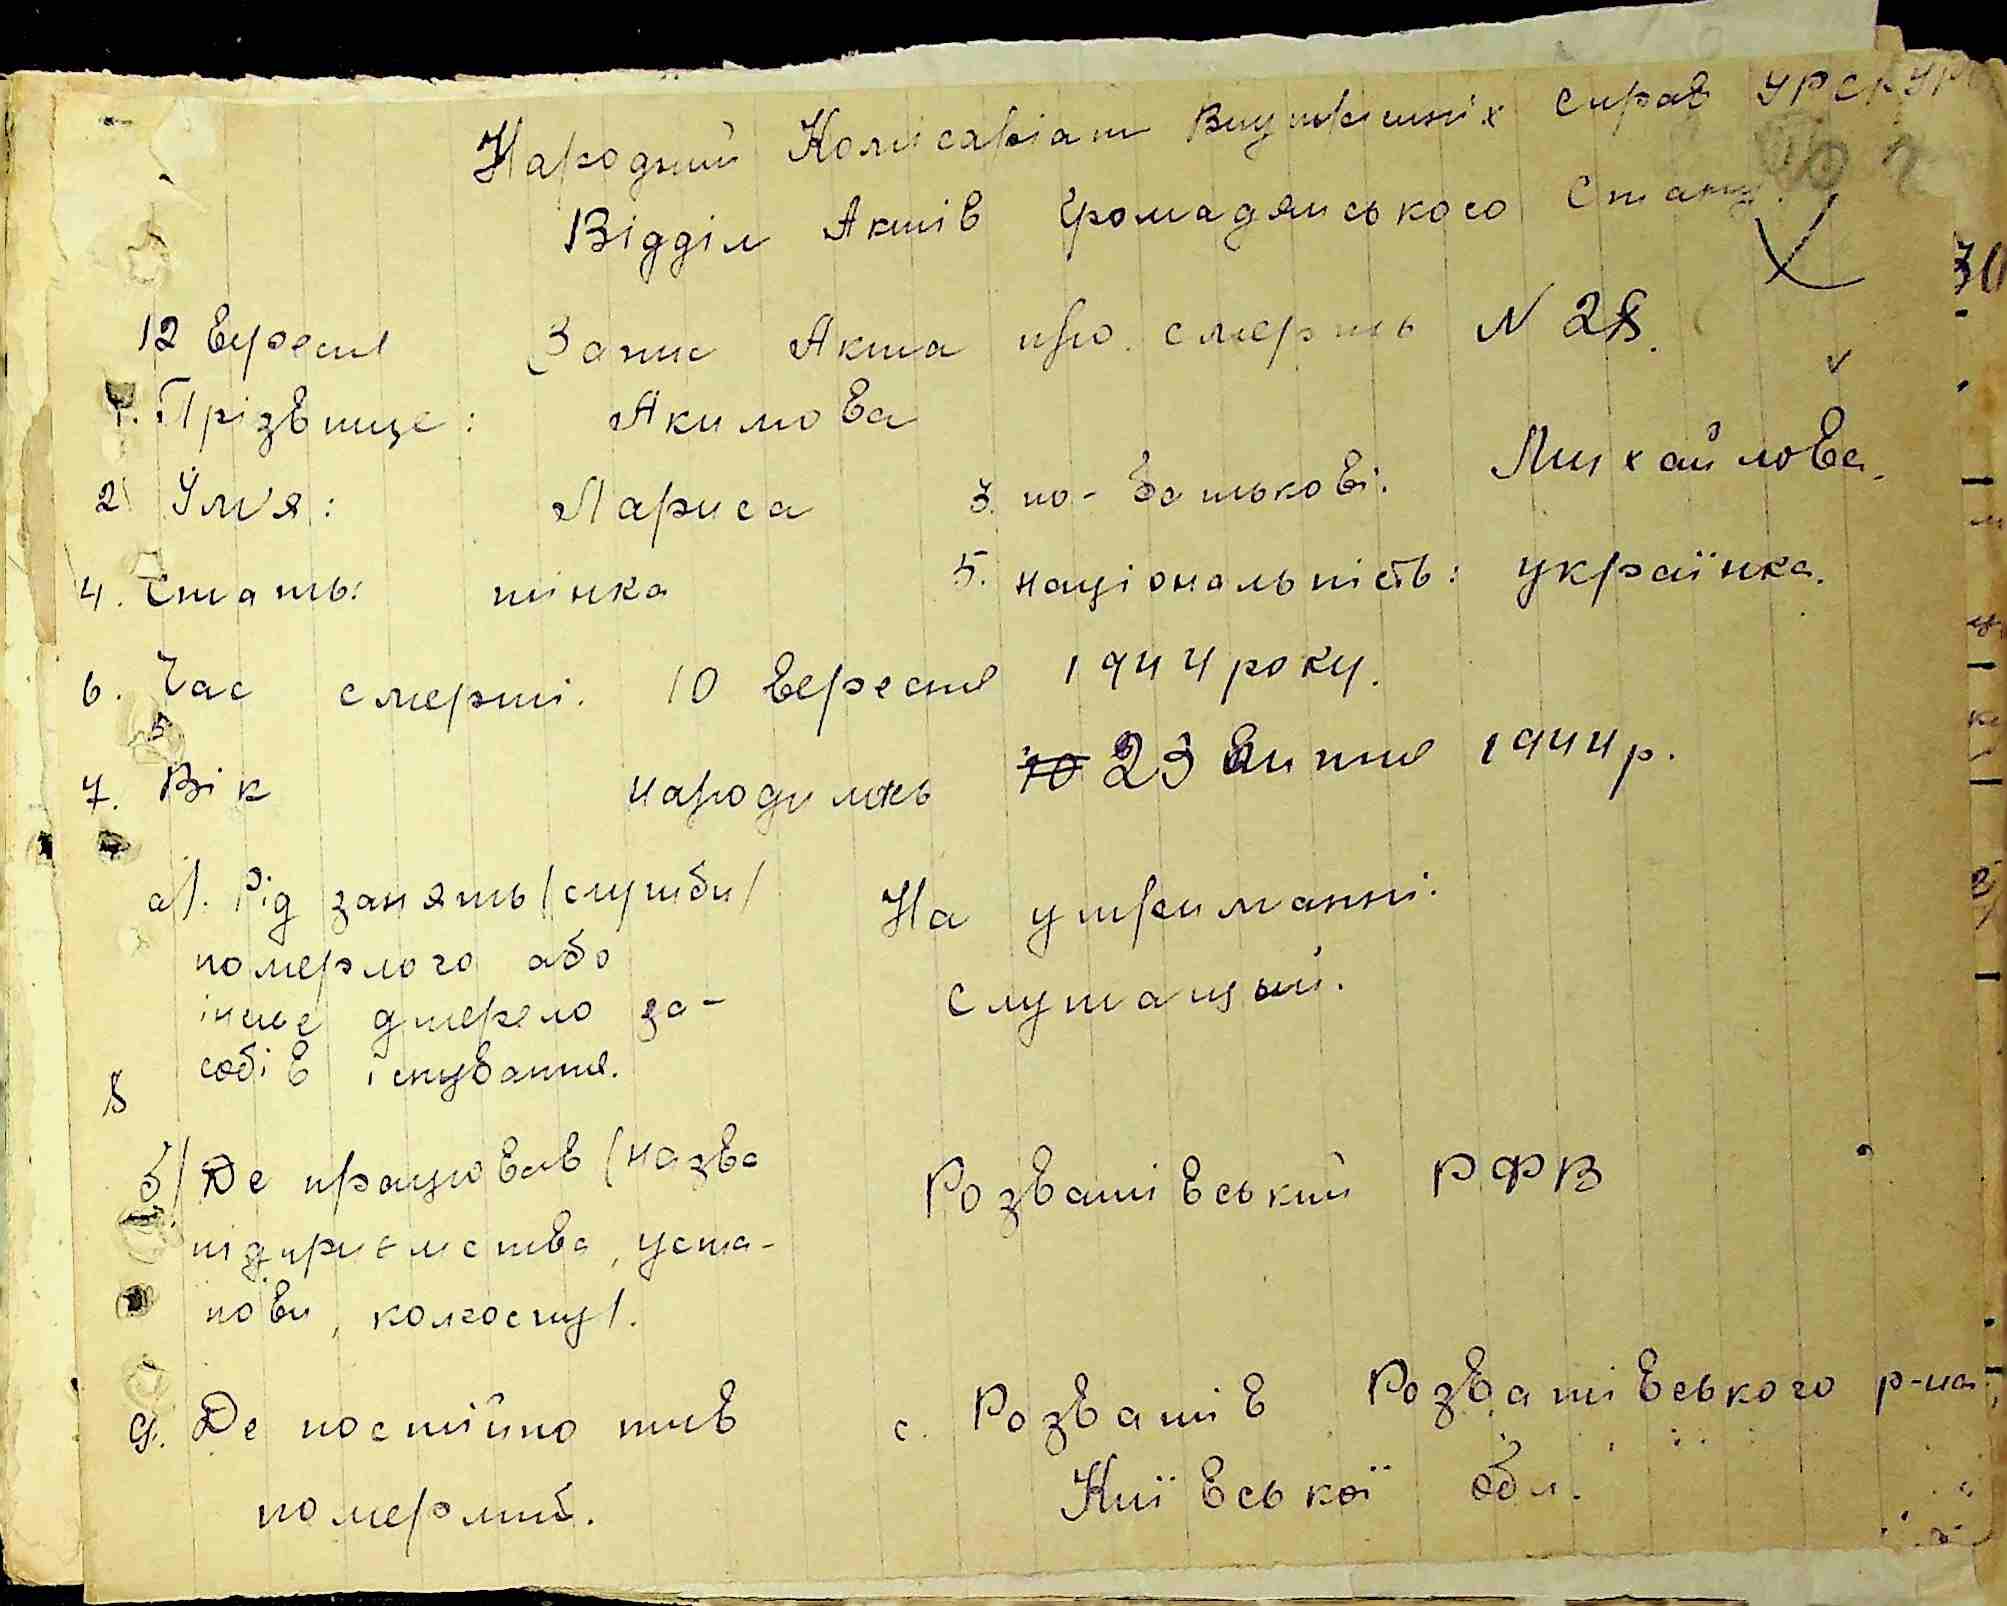 Народний Комісаріат Внутрішніх Справ УРСР
Відділ Актів Громадянського Стану.
30
12 Вересня Запис Акта про смерть N 28.
1. Прізвище: Акимова
2. Ім'я: Лариса 3. по-батькові: Михайлова.
4. Стать: жінка 5. національність: українка.
6. Час смерті. 10 вересня 1944 року.
7. Вік народилась 10 23 1944 р.
а/. Рід занять /служби/ На утриманні
померлого або служащый.
інше джерело за-
собів існування.
8
б/ Де працював /назва Розважівський РФВ
підприємства, уста-
нови, колгоспу/.
9. Де постійно жив с. Розважів Розважівського р-на
померлий. Київської обл.